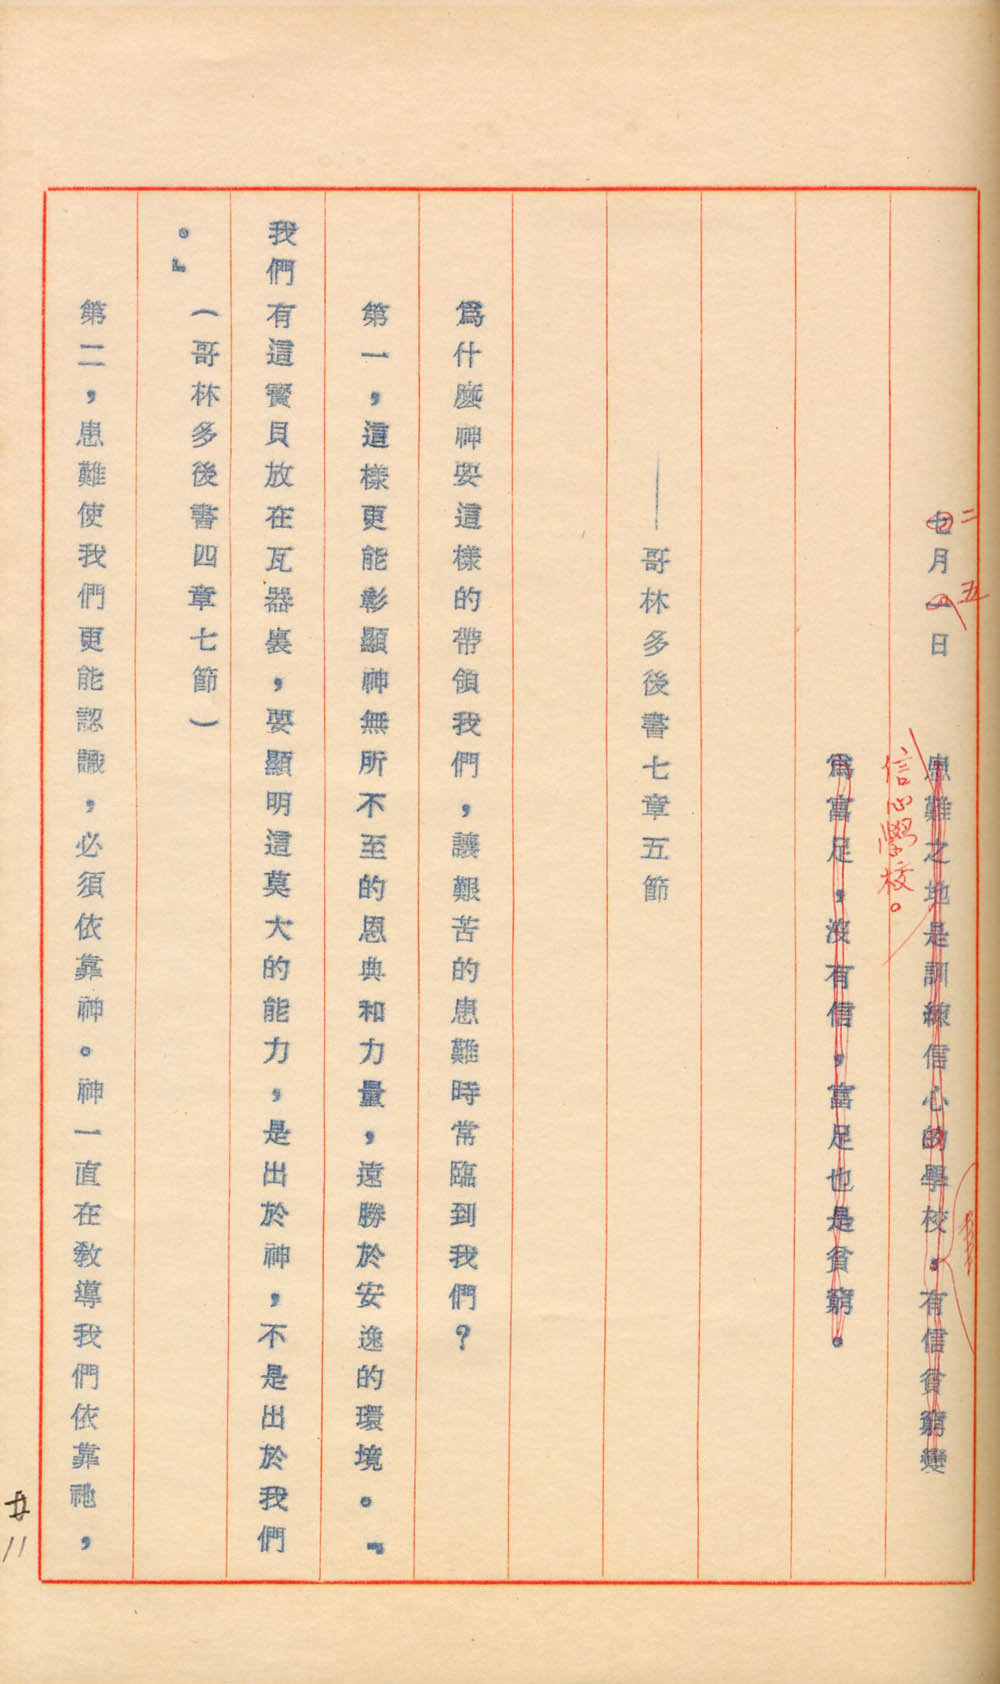 七月一日　患難之地是訓練信心的學校，有信貧窮變
二
五
信心學校。
為富足，沒有信，富足也是貧窮。
——哥林多後書七章五節
為什麼神要這樣的帶領我們，讓艱苦的患難時常臨到我們？
第一，這樣更能彰顯神無所不至的恩典和力量，遠勝於安逸的環境。『
我們有這寶貝放在瓦器裏，要顯明這莫大的能力，是出於神，不是出於我們
。』（哥林多後書四章七節）
第二，患難使我們更能認識，必須依靠神。神一直在教導我們依靠祂，
11